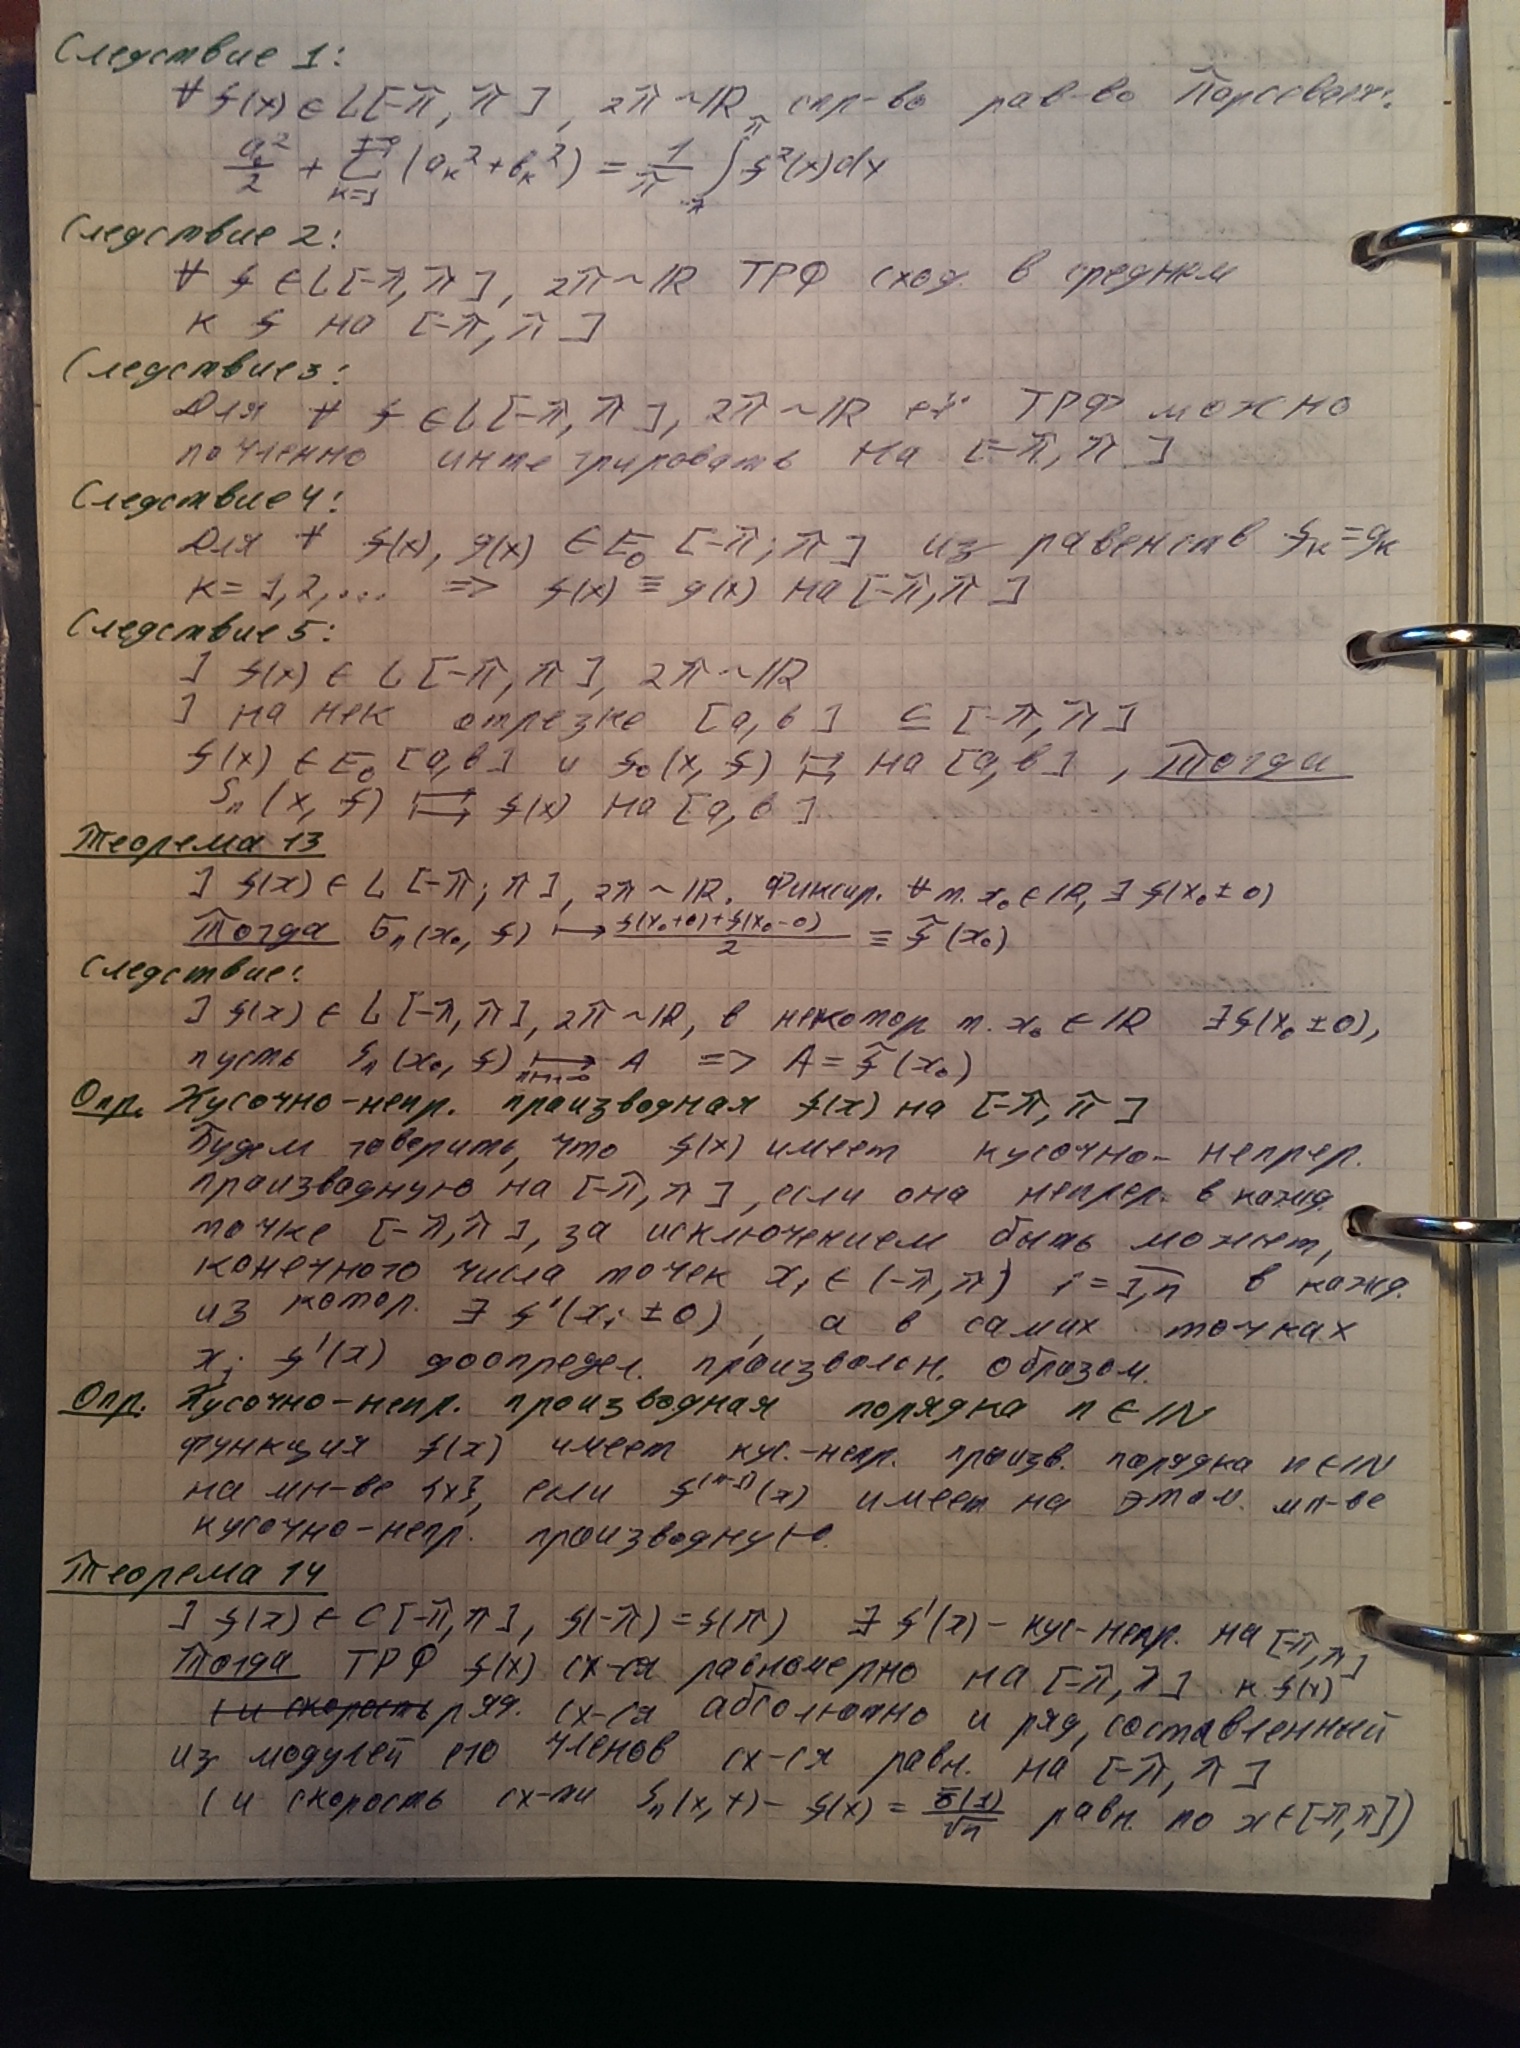 Следствие 1:
∀ f(x) ∈ L[-π, π], 2π ~ IR спр-во рав-во Парсеваля:
a₀²/2 + Σ_{k=1}^{+∞} (aₖ² + bₖ²) = 1/π ∫_{-π}^{π} f²(x)dx
Следствие 2:
∀ f ∈ L[-π, π], 2π ~ IR ТРФ сход. в среднем
к f на [-π, π]
Следствие 3:
Для ∀ f ∈ L[-π, π], 2π ~ IR её ТРФ можно
почленно интегрировать на [-π, π]
Следствие 4:
Для ∀ f(x), g(x) ∈ E₀ [-π; π] из равенств fₖ = gₖ
k = 1, 2, ... => f(x) ≡ g(x) на [-π, π]
Следствие 5:
] f(x) ∈ L [-π, π], 2π ~ IR
] на нек отрезке [a, b] ⊆ [-π, π]
f(x) ∈ E₀ [a, b] и Sₙ(x, f) ⇉ на [a, b], Тогда
Sₙ(x, f) ⇉ f(x) на [a, b]
Теорема 13
] f(x) ∈ L [-π; π], 2π ~ IR. Фиксир. ∀ т. x₀ ∈ IR, ∃ f(x₀ ± 0)
Тогда σₙ(x₀, f) ↦ (f(x₀+0)+f(x₀-0))/2 ≡ f̂(x₀)
Следствие:
] f(x) ∈ L [-π, π], 2π ~ IR, в некотор т. x₀ ∈ IR ∃ f(x₀ ± 0),
пусть Sₙ(x₀, f) ↦_{n→∞} A => A = f̂(x₀)
Опр. Кусочно-непр. производная f(x) на [-π, π]
Будем говорить, что f(x) имеет кусочно-непрер.
производную на [-π, π], если она непрер. в кажд.
точке [-π, π], за исключением быть может,
конечного числа точек xᵢ ∈ (-π, π) i = 1,n в кажд.
из котор. ∃ f'(xᵢ ± 0), а в самих точках
xᵢ f'(x) доопредел. произволон. образом.
Опр. Кусочно-непр. производная порядка n ∈ IN
Функция f(x) имеет кус.-непр. произв. порядка n ∈ IN
на мн-ве {x}, если f⁽ⁿ⁻¹⁾(x) имеет на этом. мн-ве
кусочно-непр. производную.
Теорема 14
] f(x) ∈ C [-π, π], f(-π) = f(π) ∃ f'(x) - кус-непр. на [-π, π]
Тогда ТРФ f(x) сх-ся равномерно на [-π, π] к f(x)
ряд. сх-ся абсолютно и ряд, составленный
из модулей его членов сх-ся равн. на [-π, π]
(и скорость сх-ти Sₙ(x, f) - f(x) = ō(1)/√n равн. по x ∈ [-π, π])